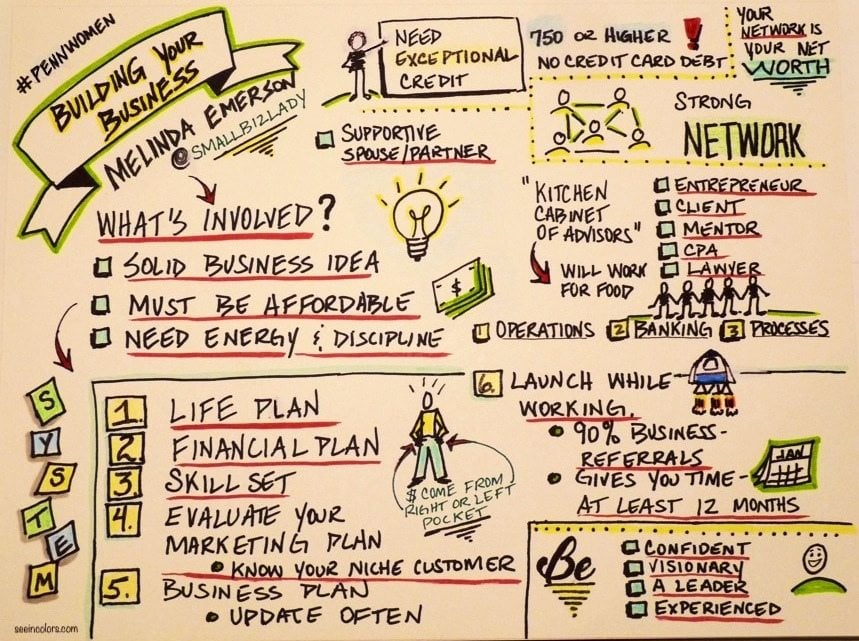 #PENNWOMEN
BUILDING YOUR
BUSINESS
MELINDA EMERSON
@SMALLBIZLADY
WHAT'S INVOLVED?
SOLID BUSINESS IDEA
MUST BE AFFORDABLE
$
NEED ENERGY & DISCIPLINE
NEED
EXCEPTIONAL
CREDIT
750 OR HIGHER !
NO CREDIT CARD DEBT
YOUR
NETWORK IS
YOUR NET
WORTH
SUPPORTIVE
SPOUSE/PARTNER
STRONG
NETWORK
"KITCHEN
CABINET
OF ADVISORS"
WILL WORK
FOR FOOD
ENTREPRENEUR
CLIENT
MENTOR
CPA
LAWYER
1 OPERATIONS 2 BANKING 3 PROCESSES
SYSTEM
1. LIFE PLAN
2. FINANCIAL PLAN
3. SKILL SET
4. EVALUATE YOUR
MARKETING PLAN
• KNOW YOUR NICHE CUSTOMER
5. BUSINESS PLAN
• UPDATE OFTEN
$ COME FROM
RIGHT OR LEFT
POCKET
6. LAUNCH WHILE
WORKING.
• 90% BUSINESS-
REFERRALS
• GIVES YOU TIME-
AT LEAST 12 MONTHS
JAN
Be
CONFIDENT
VISIONARY
A LEADER
EXPERIENCED
seeincolors.com